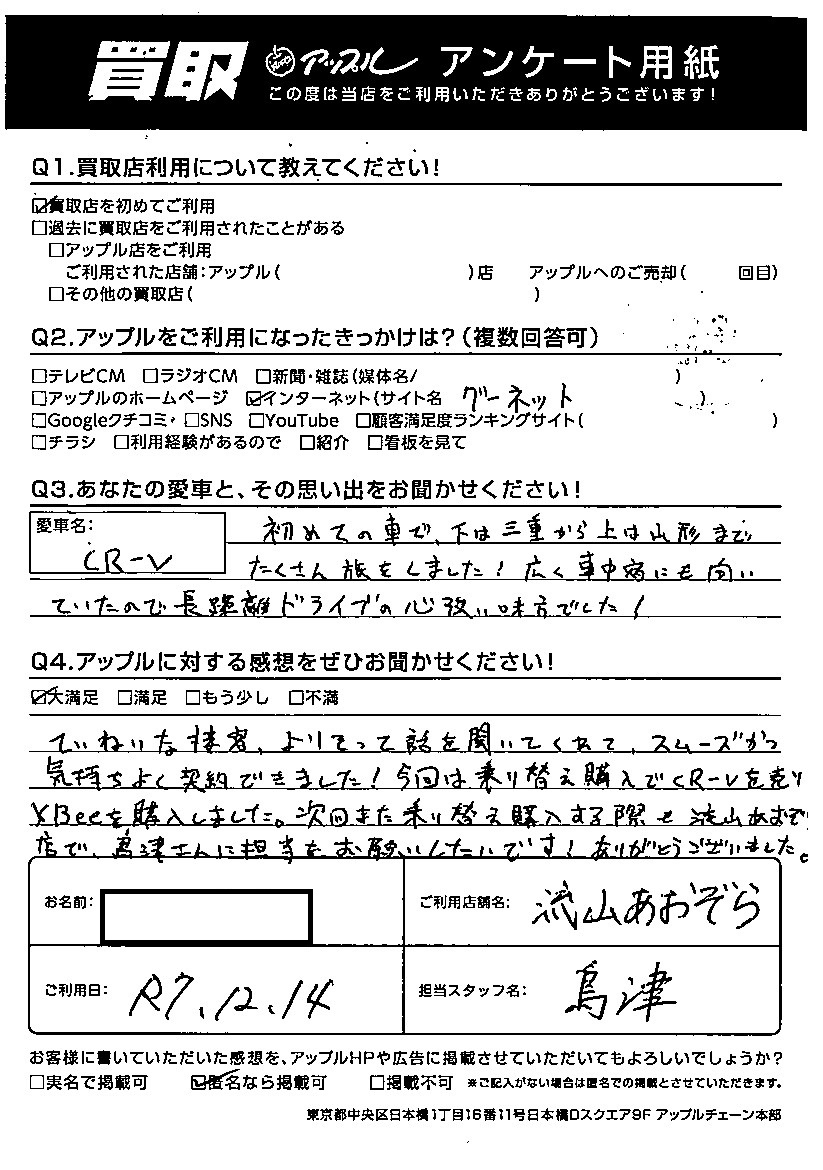 買取 アップル アンケート用紙
この度は当店をご利用いただきありがとうございます!
Q1.買取店利用について教えてください!
☑買取店を初めてご利用
□過去に買取店をご利用されたことがある
□アップル店をご利用
ご利用された店舗:アップル( )店 アップルへのご売却( 回目)
□その他の買取店( )
Q2.アップルをご利用になったきっかけは?(複数回答可)
□テレビCM □ラジオCM □新聞・雑誌(媒体名/ )
□アップルのホームページ ☑インターネット(サイト名 グーネット )
□Googleクチコミ・□SNS □YouTube □顧客満足度ランキングサイト( )
□チラシ □利用経験があるので □紹介 □看板を見て
Q3.あなたの愛車と、その思い出をお聞かせください!
愛車名:
CR-V
初めての車で、下は三重から上は山形まで
たくさん旅をしました!広く車中泊にも向い
ていたので長距離ドライブの心強い味方でした!
Q4.アップルに対する感想をぜひお聞かせください!
☑大満足 □満足 □もう少し □不満
ていねいな接客、よりそって話を聞いてくれて、スムーズかつ
気持ちよく契約できました!今回は乗り替え購入でCR-Vを売り
XBeeを購入しました。次回また乗り替え購入する際も流山あおぞら
店で、島津さんに担当をお願いしたいです!ありがとうございました。
お名前:
ご利用店舗名: 流山あおぞら
ご利用日: R7.12.14
担当スタッフ名: 島津
お客様に書いていただいた感想を、アップルHPや広告に掲載させていただいてもよろしいでしょうか?
□実名で掲載可 ☑匿名なら掲載可 □掲載不可 ※ご記入がない場合は匿名での掲載とさせていただきます。
東京都中央区日本橋1丁目16番11号日本橋Dスクエア9F アップルチェーン本部